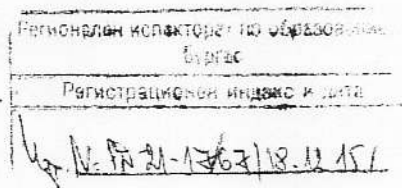 Регионален инспекторат по образование
Бургас
Регистрационен индекс и дата
№ 21-1767/18.12.15г